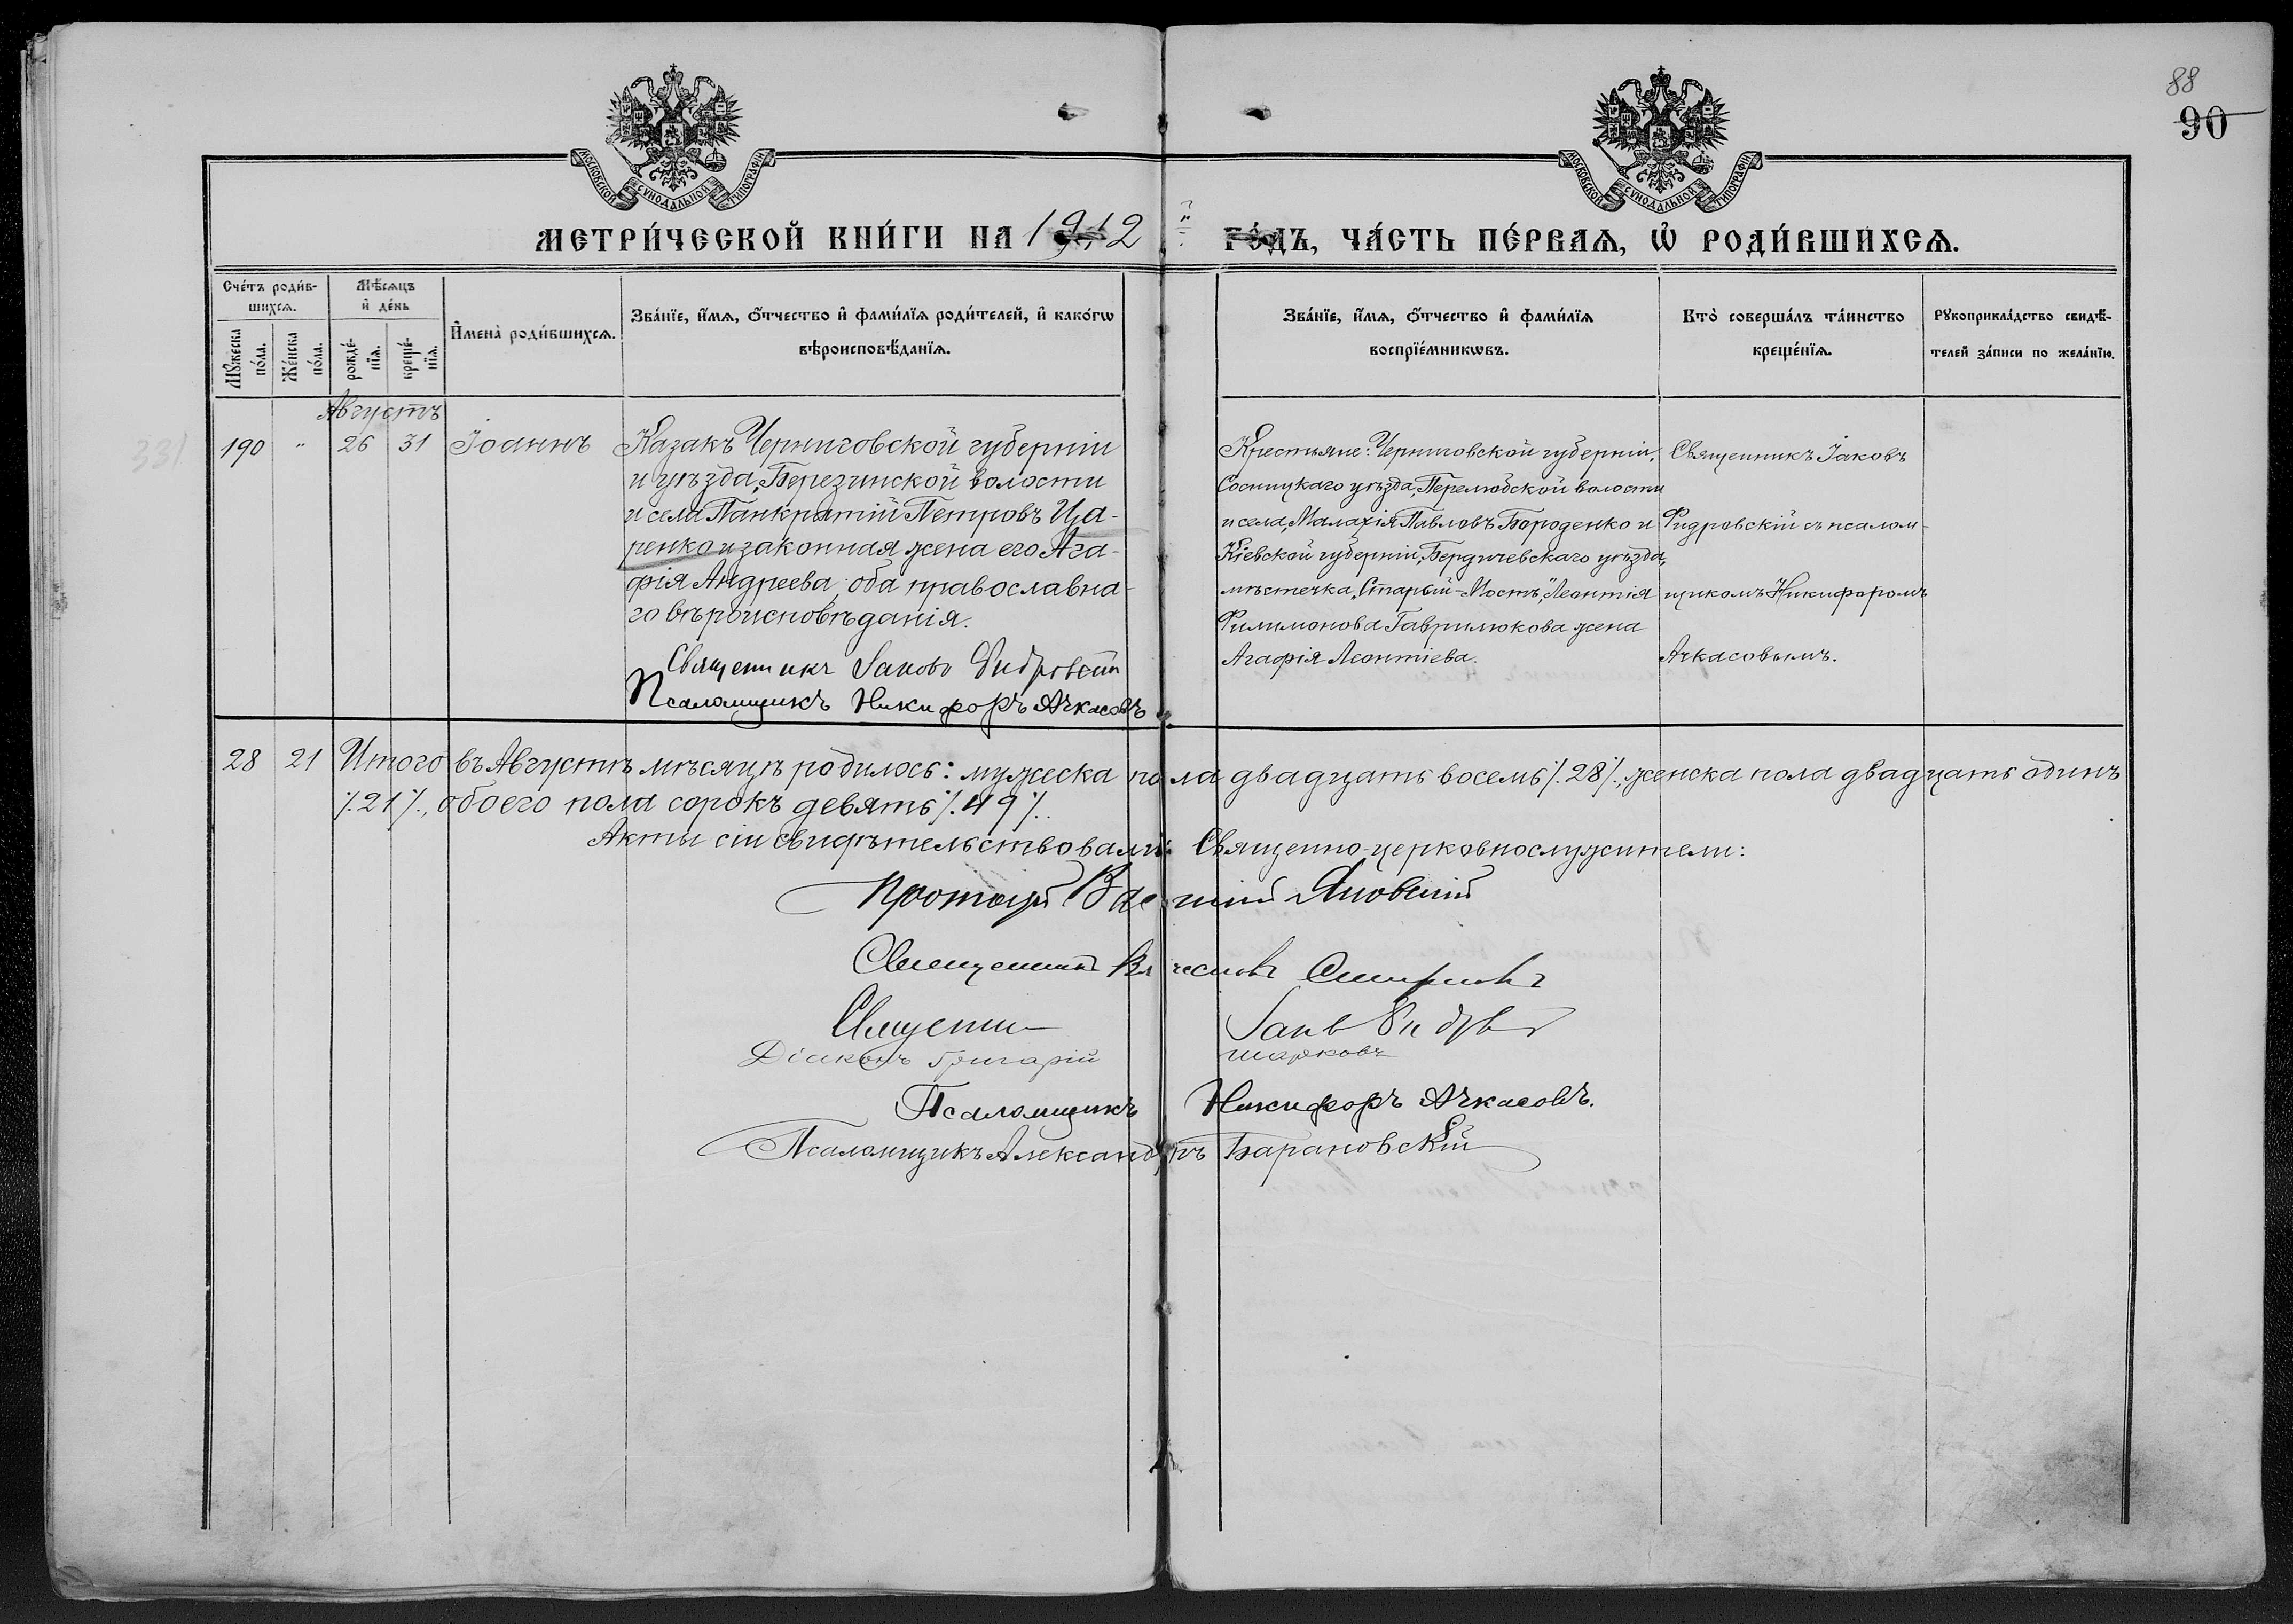 88
90
МОСКОВСКОЙ СУНОДАЛЬНОЙ ТИПОГРАФІИ
МОСКОВСКОЙ СУНОДАЛЬНОЙ ТИПОГРАФІИ
МЕТРИ́ЧЕСКОЙ КНИ́ГИ НА 1912 й ГО́ДЪ, ЧА́СТЬ ПЕ́РВАѦ, Ѡ҆ РОДИ́ВШИХСѦ.
Сче́тъ роди́в-
шихсѧ.
Мꙋ́жеска по́ла.
Же́нска по́ла.
Мѣ́сѧцъ
и҆ де́нь
рожде́-
нїѧ.
креще́-
нїѧ.
И҆мена̀ роди́вшихсѧ.
Зва́нїе, и҆́мѧ, ѻ҆́тчество и҆ фами́лїѧ роди́телей, и҆ како́гѡ
вѣроисповѣ́данїѧ.
Зва́нїе, и҆́мѧ, ѻ҆́тчество и҆ фами́лїѧ
воспрїе́мникѡвъ.
Кто̀ соверша́лъ та́инство
креще́нїѧ.
Рꙋкоприкла́дство свидѣ́-
телей за́писи по жела́нїю.
331
Августъ
190 " 26 31 Іоаннъ
Казакъ Черниговской губерніи
и уѣзда, Березинской волости
и села Панкратій Петровъ Ца-
ренко и законная жена его Ага-
фія Андреева, оба православна-
го вѣроисповѣданія.
Священникъ Іаковъ Фидровскій
Псаломщикъ Никифоръ Ачкасовъ
Крестьяне: Черниговской губерніи,
Сосницкаго уѣзда, Перелюбской волости
и села, Малахія Павловъ Бороденко и
Кіевской губерніи, Бердичевскаго уѣзда,
мѣстечка "Старый-Мостъ", Леонтія
Филимонова Гаврилюкова жена
Агафія Леонтіева.
Священникъ Іаковъ
Фидровскій съ псалом-
щикомъ Никифоромъ
Ачкасовымъ.
28 21 Итого въ Августѣ мѣсяцѣ родилось: мужеска пола двадцать восемь /.28/., женска пола двадцать одинъ
/.21/., обоего пола сорокъ девять /.49/.
Акты сіи свидѣтельствовали: Священно-церковнослужители:
Протоіерей Василій Яновскій
Священникъ Смирновъ
Священникъ Іаковъ Фидровскій
Діаконъ Григорій Шарковъ
Псаломщикъ Никифоръ Ачкасовъ.
Псаломщикъ Александръ Барановскій